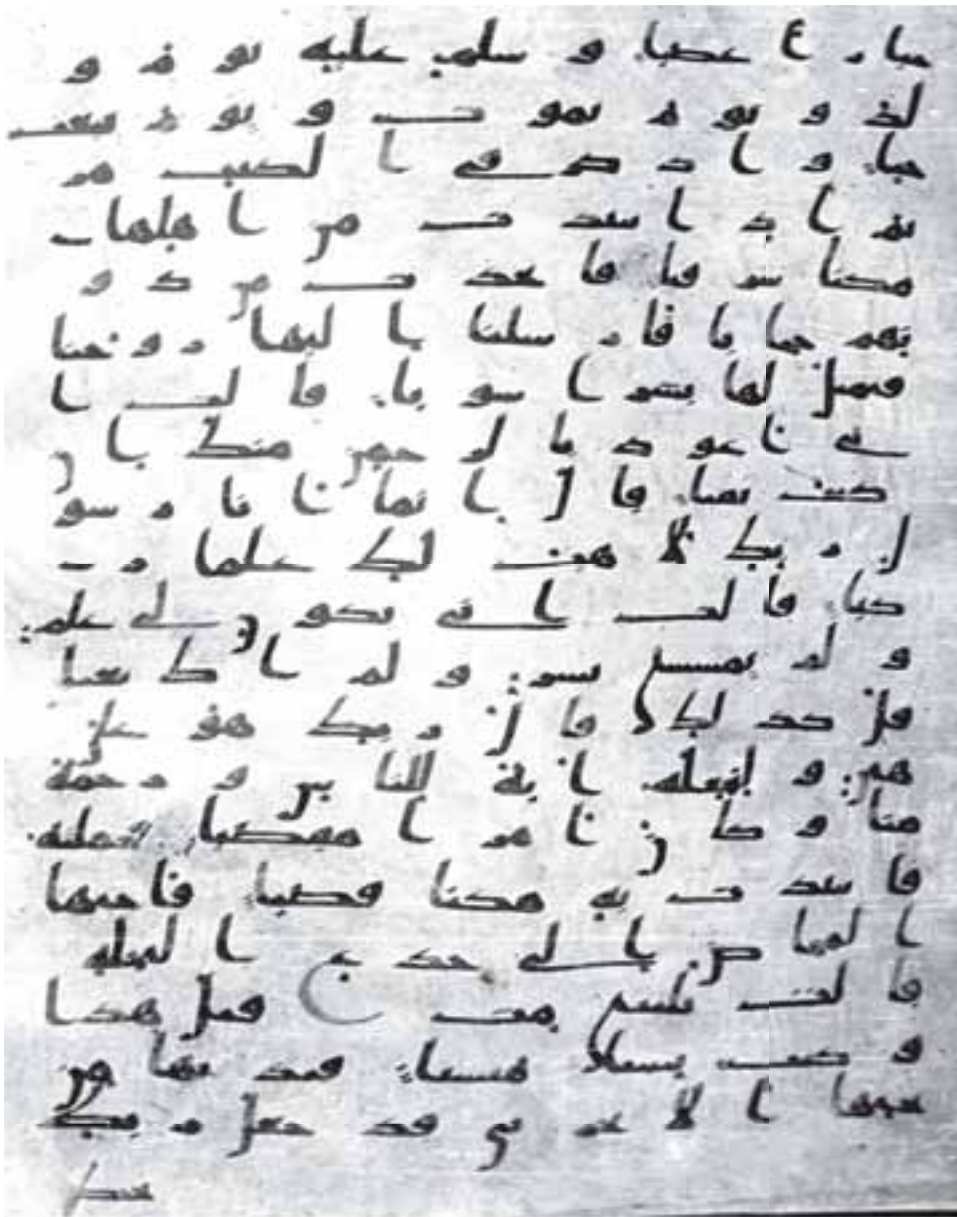 جبارا عصيا و سلم عليه يوم و
لد و يوم يموت و يوم يبعث
حيا و اذكر في الكتب مر
يم اذ انتبذت من اهلها
مكنا شرقيا فاتخذت من دو
نهم حجابا فارسلنا اليها روحنا
فتمثل لها بشرا سويا قالت ا
ني اعوذ بالرحمن منك ان
كنت تقيا قال انما انا رسو
ل ربك لاهب لك غلما ز
كيا قالت انى يكون لي غلم
و لم يمسسني بشر و لم اك بغيا
قل كذلك قال ربك هو علي
هين و لنجعله اية للناس و رحمة
منا و كان امرا مقضيا فحملته
فانتبذت به مكنا قصيا فاجاها
المخاض الى جذع النخلة
قالت يليتني مت قبل هذا
و كنت نسيا منسيا فنديها من
تحتها الا تحزني قد جعل ربك